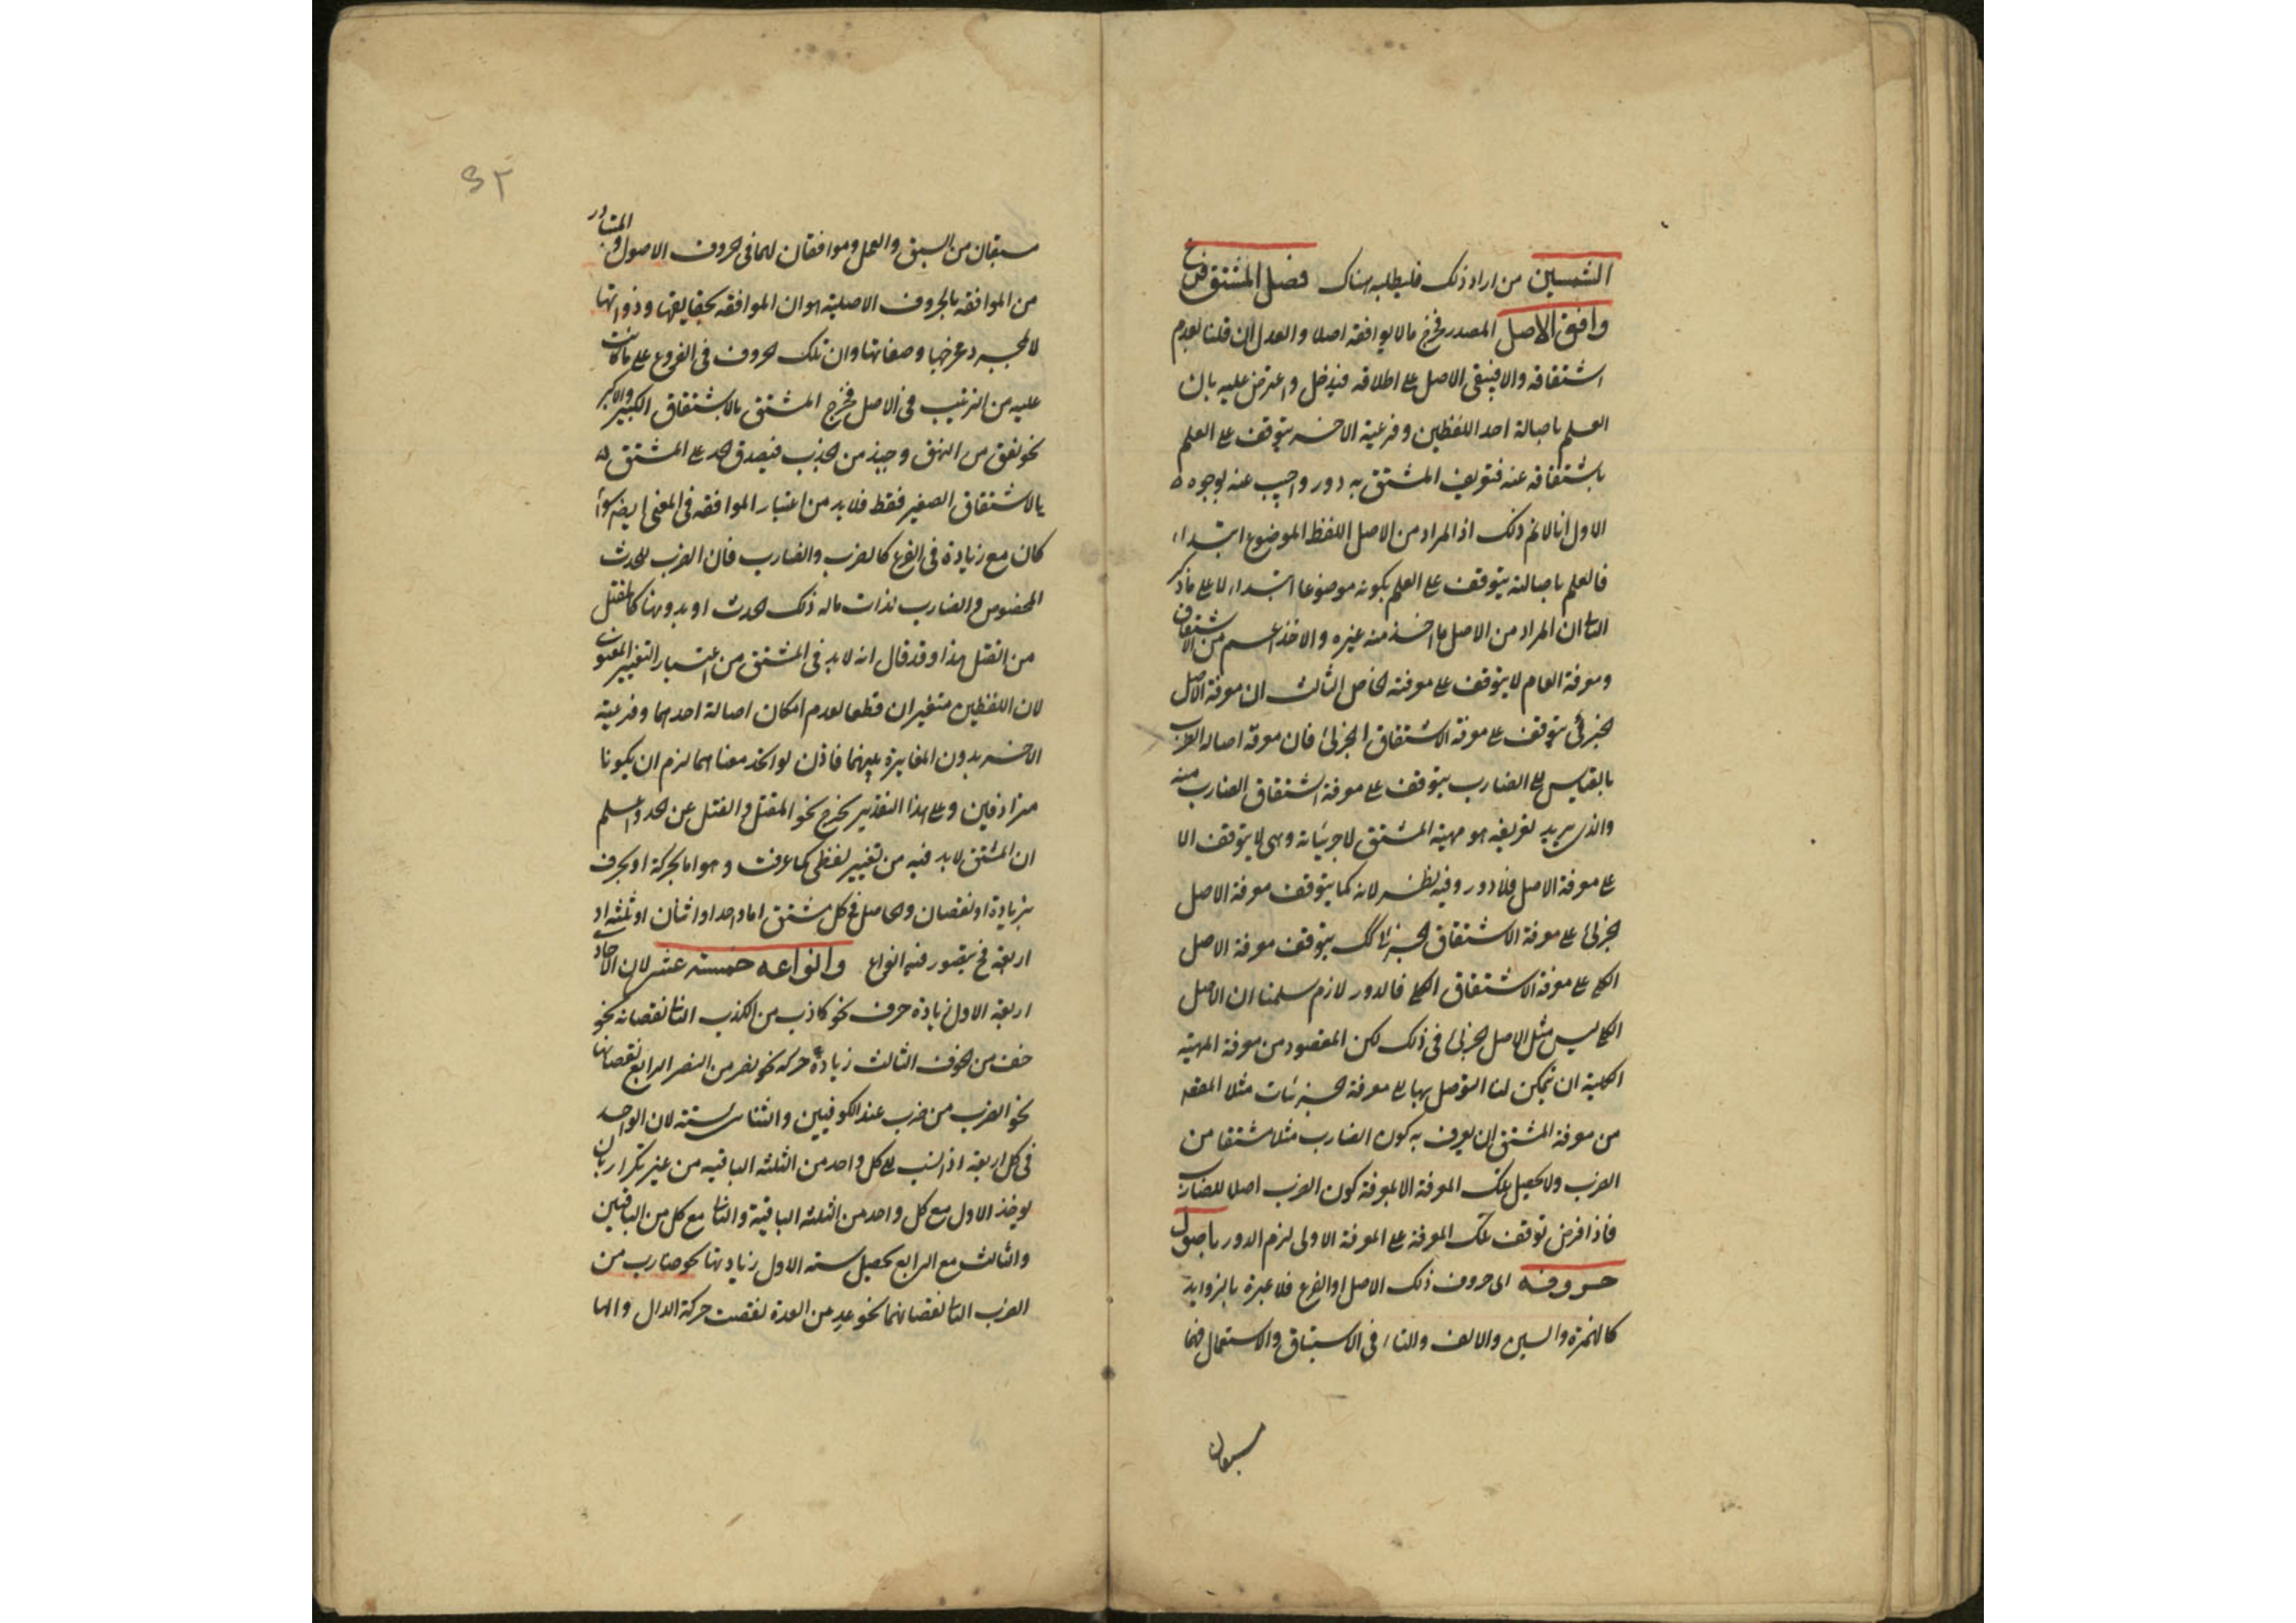 الشمسين من اراد ذلك فليطلبه هناك فصل المشتق فرع
وافق الاصل المصدر فخرج مالا يوافقه اصلا والعدل ان قلنا بعدم
اشتقاقه والا فيبقى الاصل على اطلاقه فيدخل واعترض عليه بان
العلم باصالة احد اللفظين وفرعية الاخر يتوقف على العلم
باشتقاقه عنه فتعريف المشتق به دور واجيب عنه بوجوه
الاول انا لا نم ذلك اذ المراد من الاصل اللفظ الموضوع ابتداء
فالعلم باصالته يتوقف على العلم بكونه موضوعا ابتداء لا على ماذكر
الثانى ان المراد من الاصل ما اخذ منه غيره والاخذ اعم من الاشتقاق
ومعرفة العام لا يتوقف على معرفة الخاص الثالث ان معرفة الاصل
الجزئى يتوقف على معرفة الاشتقاق الجزئى فان معرفة اصالة الضرب
بالقياس الى الضارب يتوقف على معرفة اشتقاق الضارب منه
والذى يريد تعريفه هو مهية المشتق لا جزئياته وهى لا يتوقف الا
على معرفة الاصل فلا دور وفيه نظر لانه كما يتوقف معرفة الاصل
الجزئى على معرفة الاشتقاق الجزئى كك يتوقف معرفة الاصل
الكلى على معرفة الاشتقاق الكلى فالدور لازم سلمنا ان الاصل
الكلى ليس مثل الاصل الجزئى فى ذلك لكن المقصود من معرفة المهية
الكلية ان يمكن لنا التوصل بها الى معرفة الجزئيات مثلا المقصد
من معرفة المشتق ان يعرف به كون الضارب مثلا مشتقا من
الضرب ولا يحصل تلك المعرفة الا بمعرفة كون الضرب اصلا للضارب
فاذا فرض توقف تلك المعرفة على المعرفة الاولى لزم الدور باصول
حروفه اى حروف ذلك الاصل او الفرع فلا عبرة بالزوايد
كالهمزة والسين والالف والتاء فى الاستباق والاستعمال فهما
يسبقان
يسبقان من السبق والعمل وموافقان لهما فى الحروف الاصول والمتبادر
من الموافقه بالحروف الاصلية هو ان الموافقه بحقايقها وذواتها
لا بمجرد عرضها وصفاتها وان تلك الحروف فى الفروع على ماكانت
عليه من الترتيب فى الاصل فخرج المشتق بالاشتقاق الكبير والاكبر
نحو نعق من النهق وجبذ من الجذب فيصدق الحد على المشتق
بالاشتقاق الصغير فقط فلا بد من اعتبار الموافقه فى المعنى ايضا سواء
كان مع زيادة فى الفرع كالضرب والضارب فان الضرب للحدث
المخصوص والضارب لذات ماله ذلك الحدث او بدونها كالمقتل
من القتل هذا وقد قال انه لا بد فى المشتق من اعتبار التغيير المعنوى
لان اللفظين متغيران قطعا لعدم امكان اصالة احدهما وفرعية
الاخر بدون المغايرة بينهما فاذن لو اتحد معناهما لزم ان يكونا
مترادفين وعلى هذا التقدير يخرج نحو المقتل والقتل عن الحد واعلم
ان المشتق لا بد فيه من تغيير لفظى كما عرفت وهو اما بحركة او بحرف
بزيادة او نقصان والحاصل فى كل مشتق اما واحد او اثنان او ثلثه او
اربعة فح يتصور فيه انواع وانواعه خمسته عشر لان الآحاد
اربعة الاول زيادة حرف نحو كاذب من الكذب الثانى نقصانه نحو
خف من الخوف الثالث زيادة حركه نحو نصر من النصر الرابع نقصانها
نحو الضرب من ضرب عند الكوفيين والثنائى ستة لان الواحد
فى كل اربعة اذا نسب الى كل واحد من الثلثه الباقيه من غير تكرار بان
يوخذ الاول مع كل واحد من الثلثه الباقية والثانى مع كل من الباقيين
والثالث مع الرابع يحصل سته الاول زيادتها نحو ضارب من
الضرب الثانى نقصانهما نحو عد من العدة نقصت حركة الدال والها